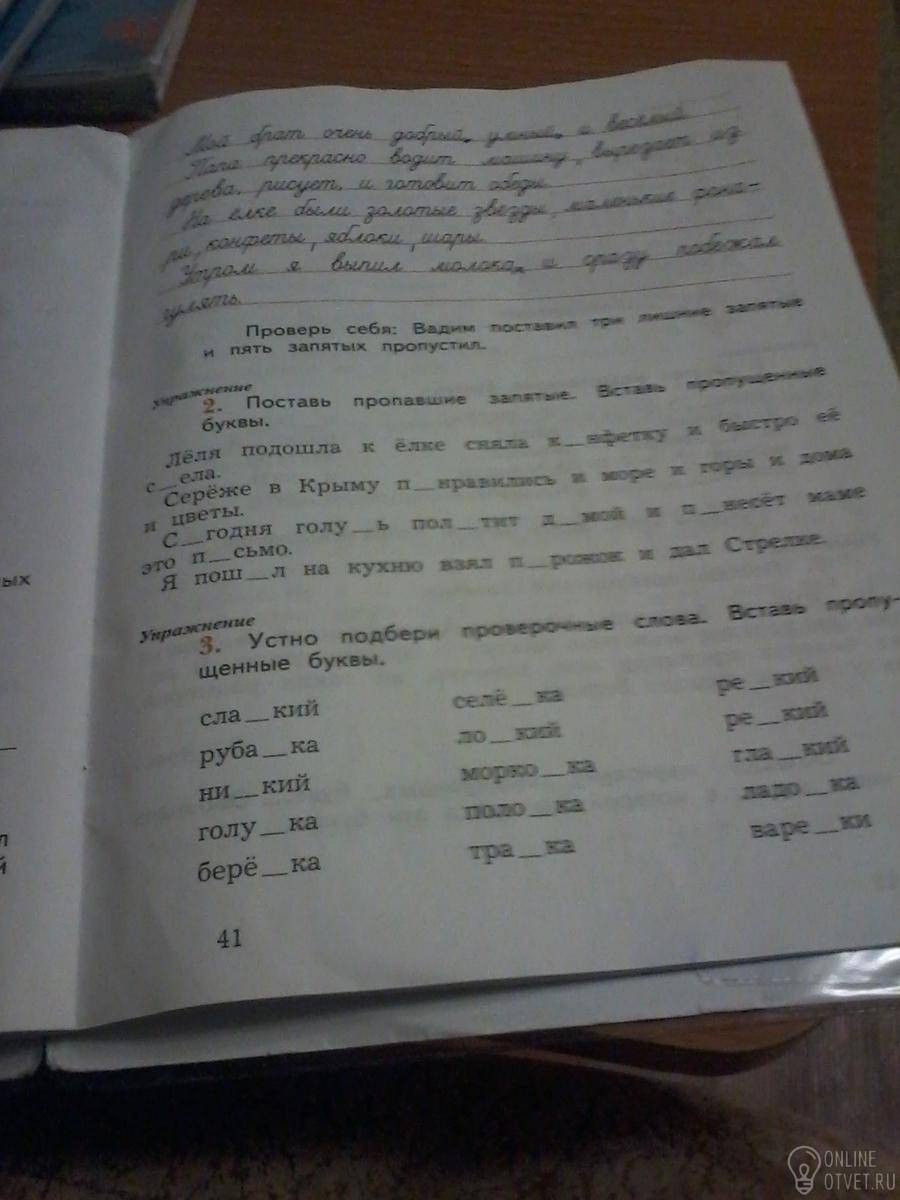 Мой брат очень добрый, умный, и весёлый
Папа прекрасно водит машину, вырезает из
дерева, рисует, и готовит обеды.
На елке были золотые звезды, маленькие фона-
ри, конфеты, яблоки, шары.
Утром я выпил молока, и сразу побежал
гулять.
Проверь себя: Вадим поставил три лишние запятые
и пять запятых пропустил.
Упражнение
2. Поставь пропавшие запятые. Вставь пропущенные
буквы.
Лёля подошла к ёлке сняла к__нфетку и быстро её
с__ела.
Серёже в Крыму п__нравились и море и горы и дома
и цветы.
С__годня голу__ь пол__тит д__мой и п__несёт маме
это п__сьмо.
Я пош__л на кухню взял п__рожок и дал Стрелке.
Упражнение
3. Устно подбери проверочные слова. Вставь пропу-
щенные буквы.
сла__кий селё__ка ре__кий
руба__ка ло__кий ре__кий
ни__кий морко__ка гла__кий
голу__ка поло__ка ладо__ка
берё__ка тра__ка варе__ки
41
ых
л
й
ONLINE
OTVET.RU